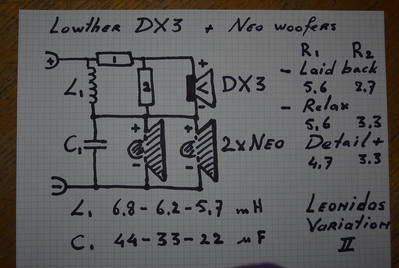 Lowther DX3 + Neo woofers
R1 R2
- Laid back
5.6 2.7
- Relax
5,6 3.3
Detail +
4.7 3.3
+
1
L1
2
+
-
DX3
C1
+
-
+
-
2xNEO
-
L1 6.8 - 6.2 - 5.7 mH
C1 44 - 33 - 22 µF
Leonidas
Variation
II